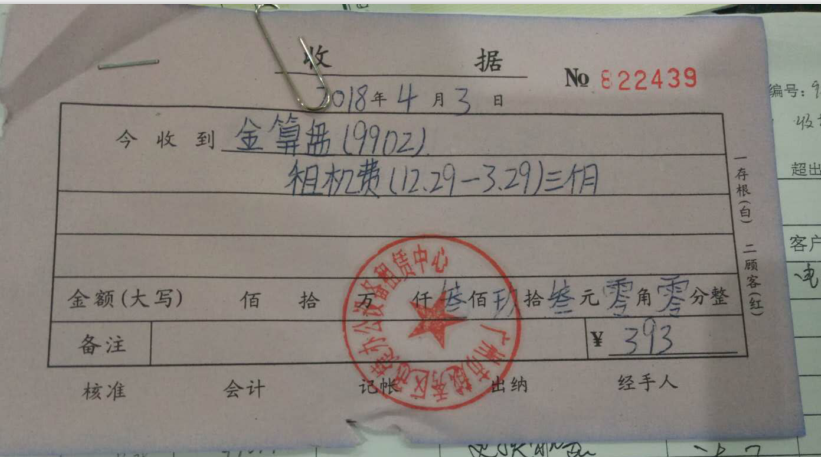 收 据
No 822439
2018年4月3日
今收到 金算盘(9902)
租机费(12.29-3.29)三个月
金额(大写) 佰 拾 万 仟叁佰玖拾叁元零角零分整
备注
¥ 393
核准 会计 记帐 出纳 经手人
一存根(白) 二顾客(红)
办公设备租赁中心
广州市越秀区
编号:9
收
超出
客户
电